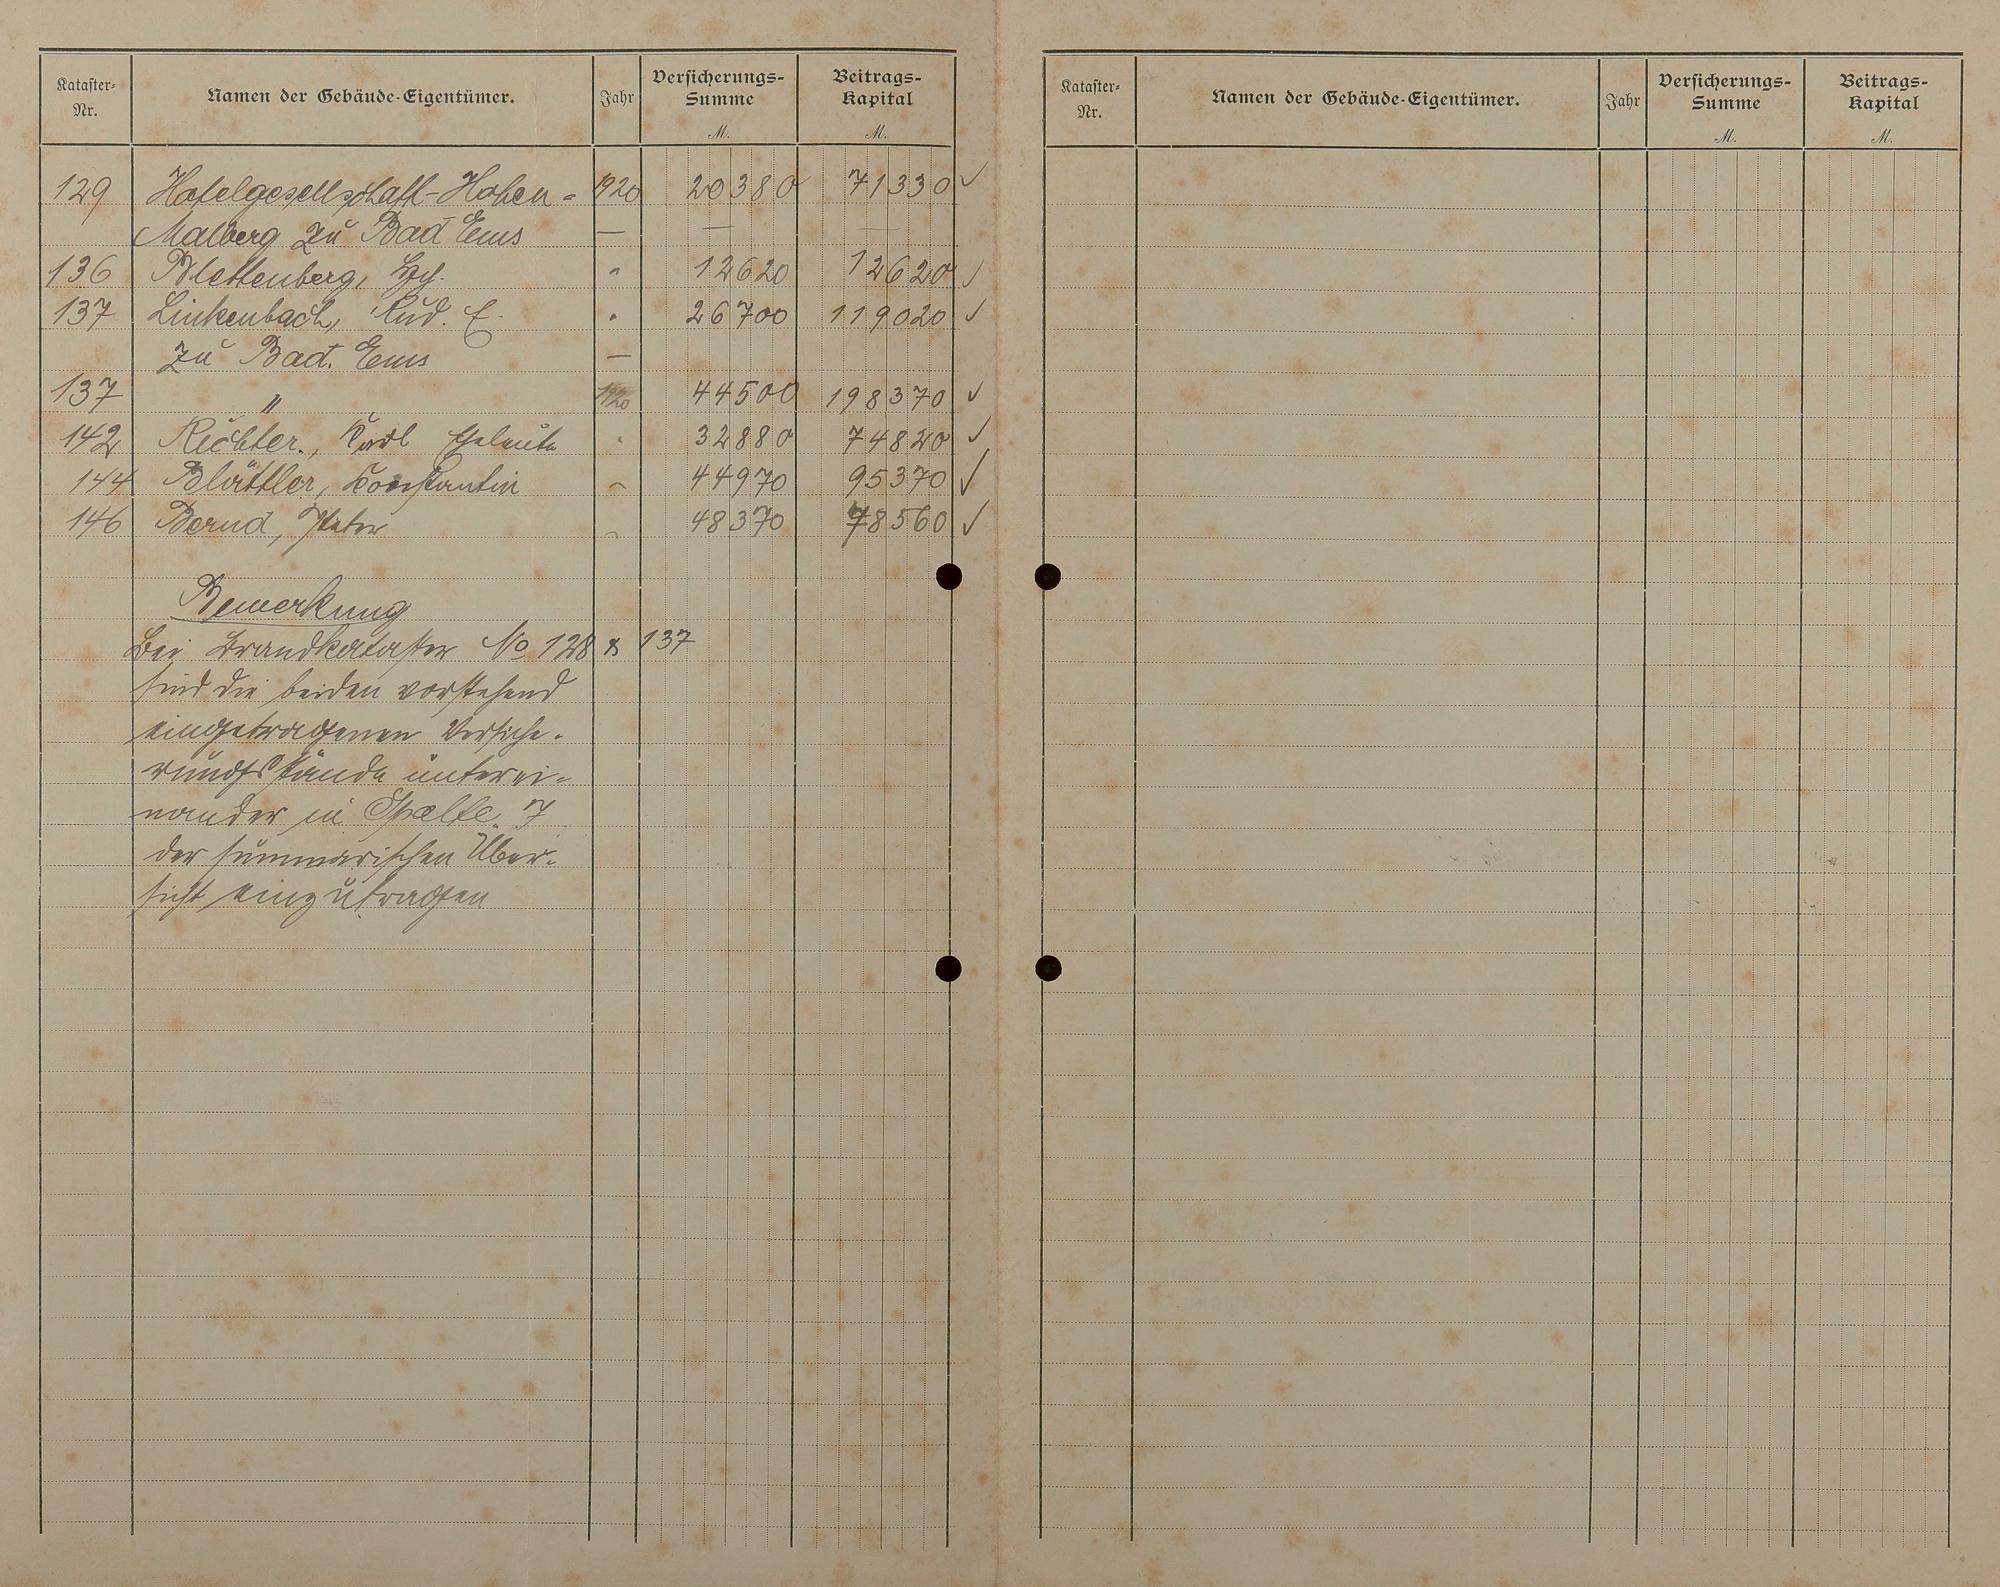 Kataster- Nr. Namen der Gebäude-Eigentümer. Jahr Versicherungs-Summe M. Beitrags-Kapital M.
129 Hotelgesellschaft-Hohen- 1920 20380 71330 ✓
Malberg zu Bad Ems — —
136 Plettenberg, Hch. " 12620 12620 ✓
137 Linkenbach, Rud. E. " 26700 119020 ✓
zu Bad. Ems —
137 " 1920 44500 198370 ✓
142 Richter., Karl Eheleute " 32880 74820 ✓
144 Blättler, Konstantin " 44970 95370 ✓
146 Bernd, Peter " 48370 78560 ✓
Bemerkung
Bei Brandkataster No 128 & 137
sind die beiden vorstehend
eingetragenen Versiche-
rungsstände unterei-
nander in Spalte 7
der summarischen Über-
sicht einzutragen
Kataster- Nr. Namen der Gebäude-Eigentümer. Jahr Versicherungs-Summe M. Beitrags-Kapital M.